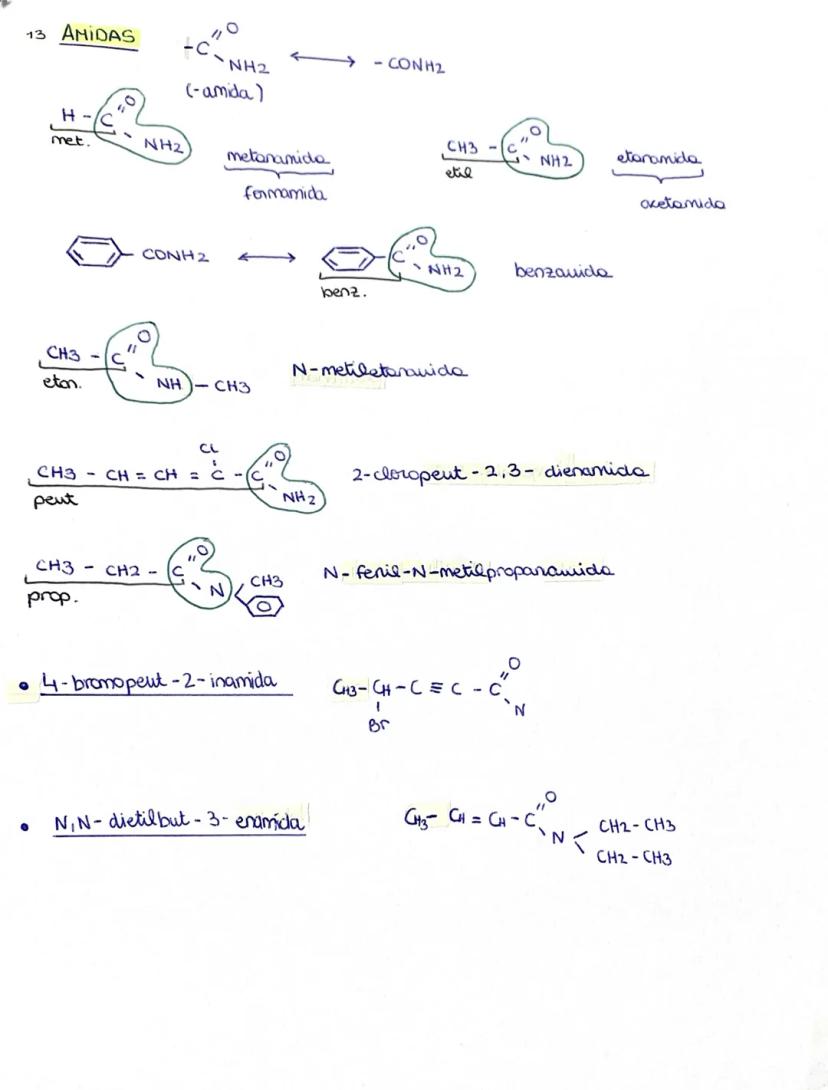 13 AMIDAS -C=O NH2 ⟷ -CONH2
(-amida)
H - C=O NH2
met.
metanamida
formamida
CH3 - C=O NH2
etil
etanamida
acetamida
CONH2 ⟷ C=O NH2 benzamida
benz.
CH3 - C=O NH - CH3 N-metiletanamida
etan.
Cl
CH3 - CH = CH = C - C=O NH2 2-cloropent-2,3-dienamida
pent
CH3 - CH2 - C=O N CH3 N-fenil-N-metilpropanamida
prop.
• 4-bromopent-2-inamida CH3- CH - C ≡ C - C=O N
Br
• N,N-dietilbut-3-enamida CH3- CH = CH - C=O N CH2-CH3
CH2-CH3